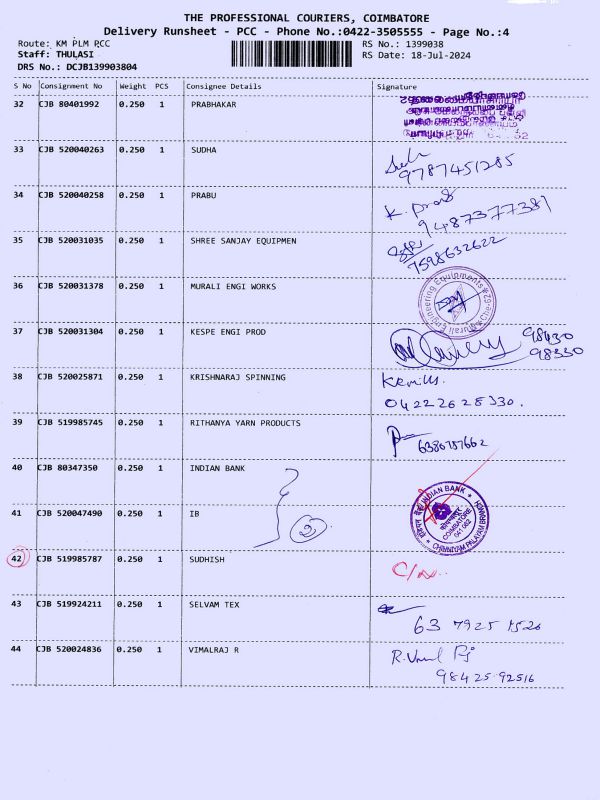 THE PROFESSIONAL COURIERS, COIMBATORE
Delivery Runsheet - PCC - Phone No.:0422-3505555 - Page No.:4
Route: KM PLM PCC
RS No.: 1399038
Staff: THULASI
RS Date: 18-Jul-2024
DRS No.: DCJB139903804
S No Consignment No Weight PCS Consignee Details Signature
32 CJB 80401992 0.250 1 PRABHAKAR
33 CJB 520040263 0.250 1 SUDHA
9787451285
34 CJB 520040258 0.250 1 PRABU
9487377381
35 CJB 520031035 0.250 1 SHREE SANJAY EQUIPMEN
7598632622
36 CJB 520031378 0.250 1 MURALI ENGI WORKS
Murali Engineering Equipments
37 CJB 520031304 0.250 1 KESPE ENGI PROD
98430
98330
38 CJB 520025871 0.250 1 KRISHNARAJ SPINNING
04222628330.
39 CJB 519985745 0.250 1 RITHANYA YARN PRODUCTS
6380757662
40 CJB 80347350 0.250 1 INDIAN BANK
41 CJB 520047490 0.250 1 IB
2
INDIAN BANK
COIMBATORE
641 062
CHINNIYAM PALAYAM BRANCH
42 CJB 519985787 0.250 1 SUDHISH
43 CJB 519924211 0.250 1 SELVAM TEX
63 7925 1526
44 CJB 520024836 0.250 1 VIMALRAJ R
98425 92516